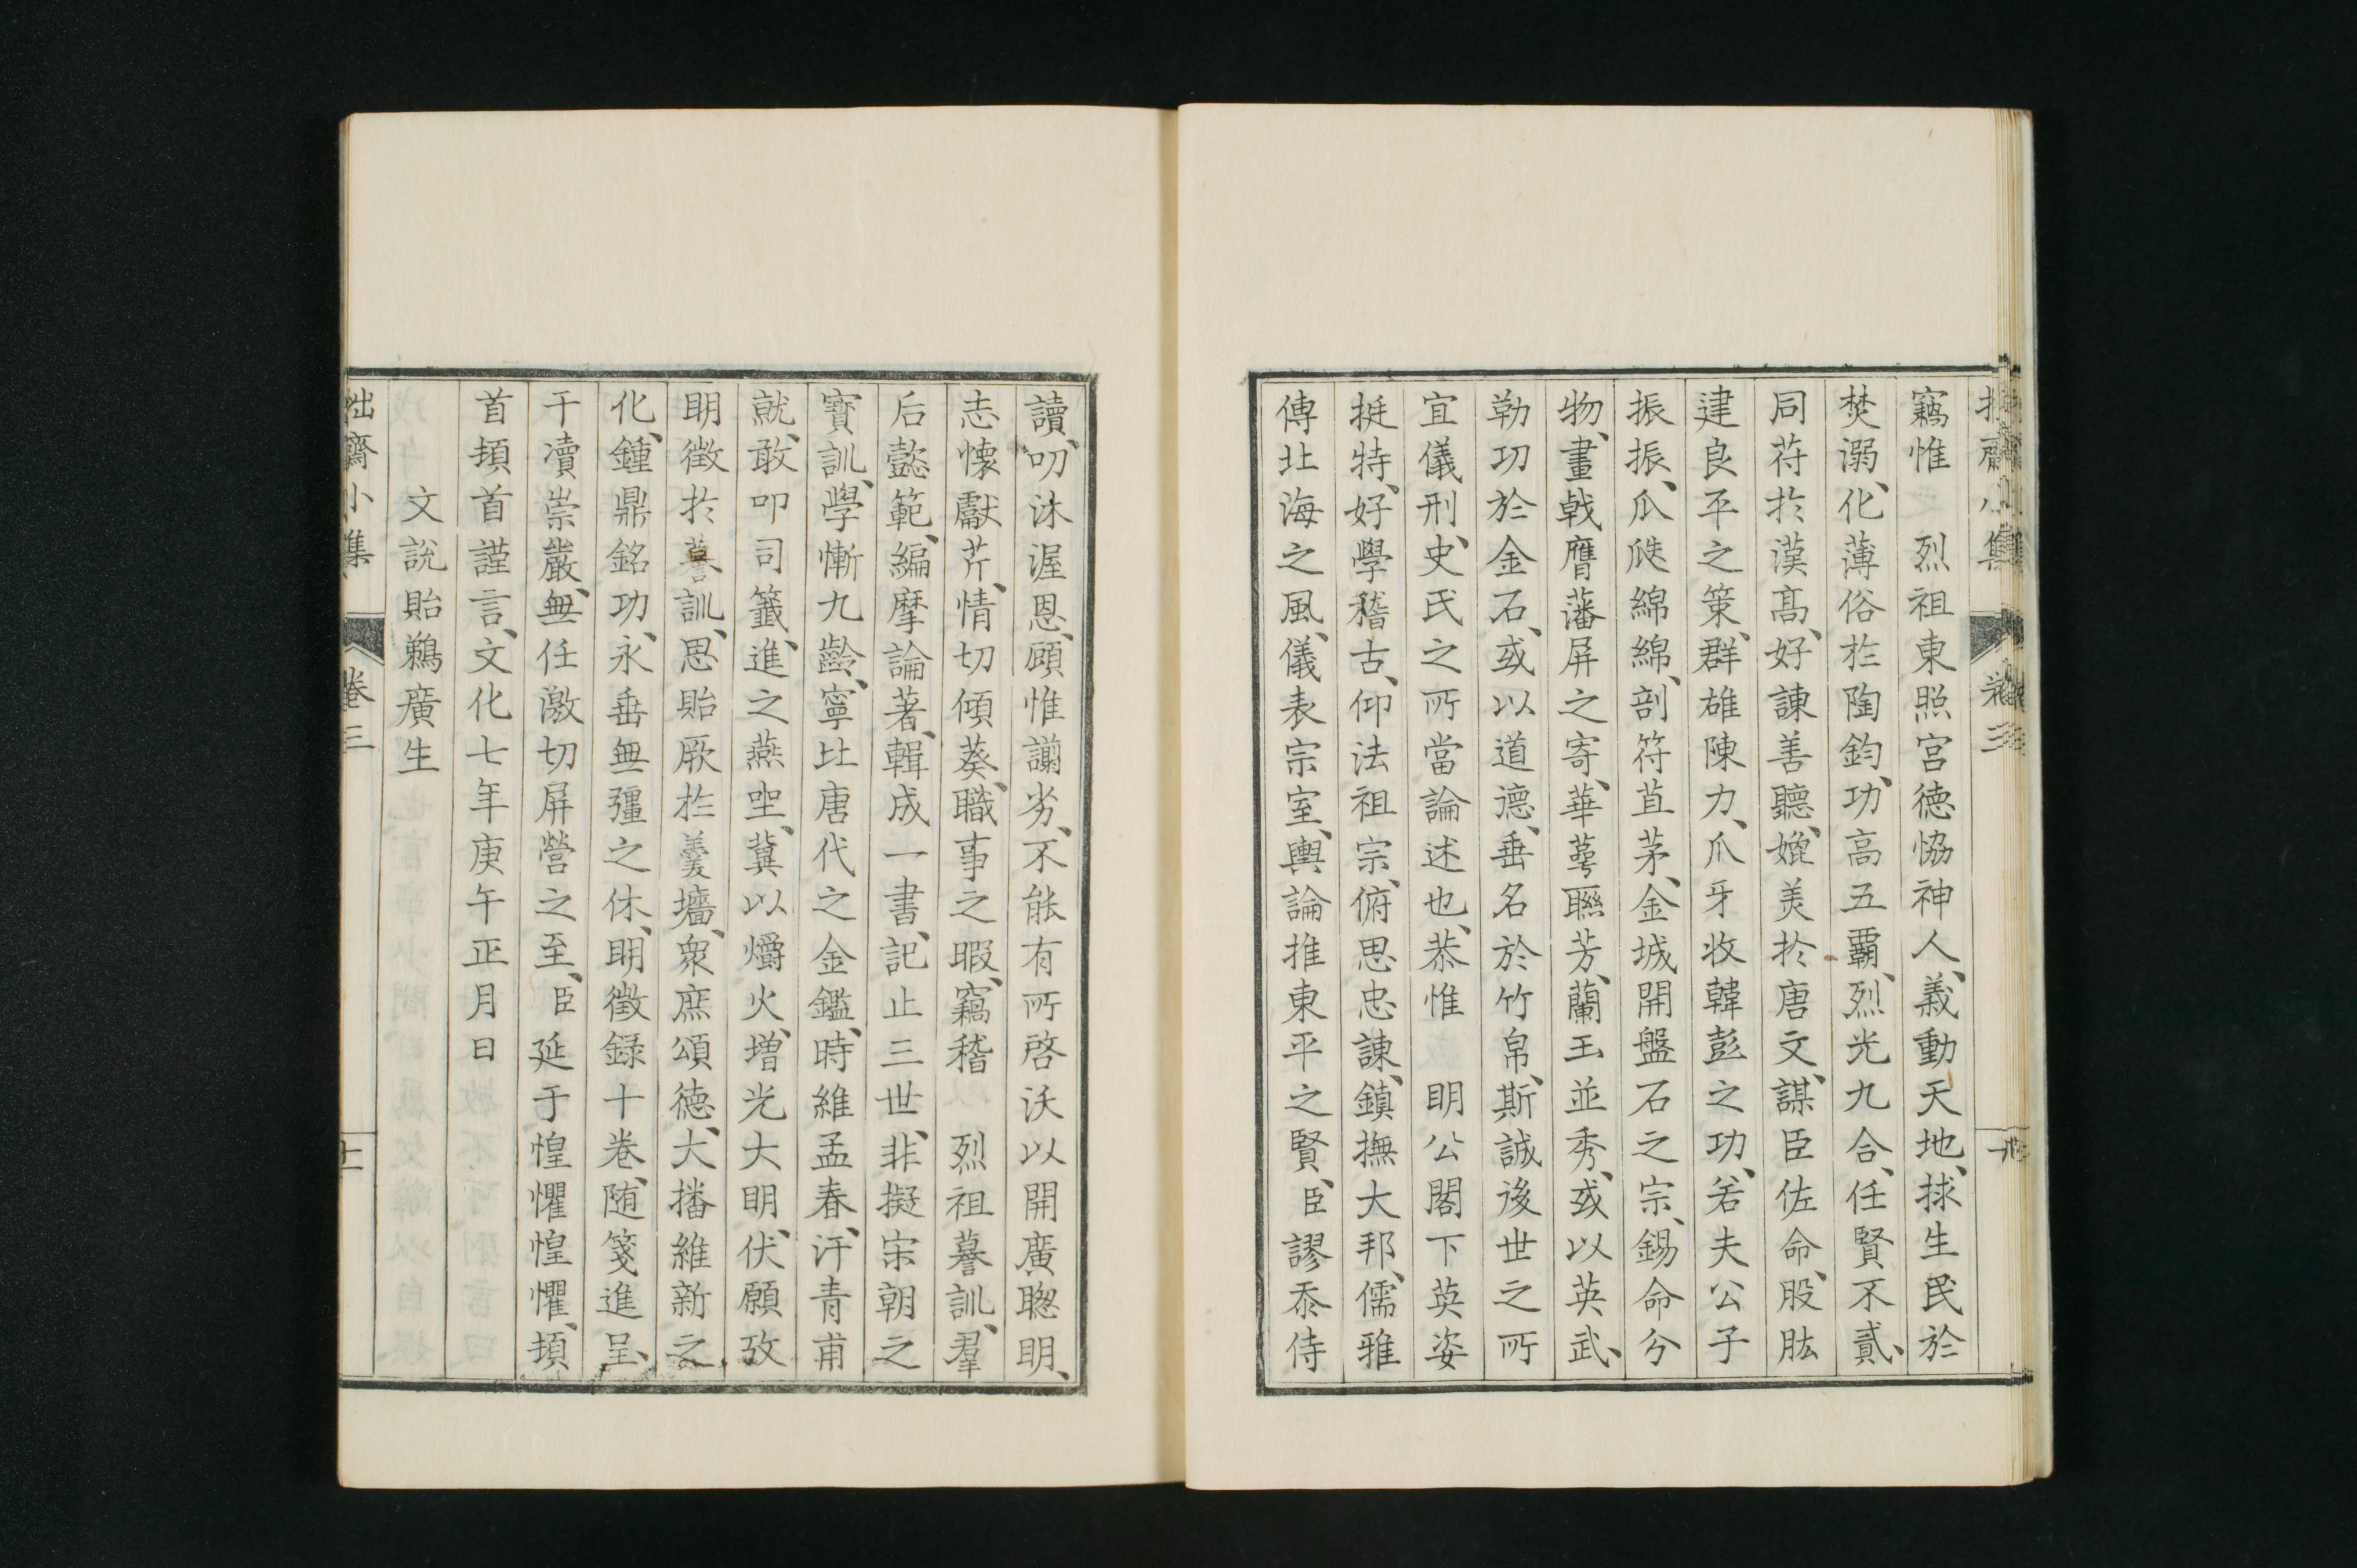 竊惟　烈祖東照宮德恊神人、義動天地、捄生民於
焚溺、化薄俗於陶鈞、功高五覇、烈光九合、任賢不貳、
同苻於漢高、好諌善聽、媲美於唐文、謀臣佐命、股肱
建良平之策、群雄陳力、爪牙收韓彭之功、若夫公子
振振、瓜瓞綿綿、剖符苴茅、金城開盤石之宗、錫命分
物、畫戟膺藩屏之寄、華萼聮芳、蘭玉並秀、或以英武、
勒功於金石、或以道德、垂名於竹帛、斯誠後世之所
宜儀刑、史氏之所當論述也、恭惟　明公閣下英姿
挺特、好學稽古、仰法祖宗、俯思忠諌、鎮撫大邦、儒雅
傳北海之風、儀表宗室、輿論推東平之賢、臣謬忝侍
讀、叨沐渥恩、顧惟謭劣、不能有所啓沃以開廣聦明、
志懷獻芹、情切傾葵、職事之暇、竊稽　烈祖謩訓、羣
后懿範、編摩論著、輯成一書、記止三世、非擬宋朝之
寳訓、學慚九齡、寧比唐代之金鑑、時維孟春、汗青甫
就、敢叩司籖、進之燕坐、冀以爝火、增光大明、伏願攷
明徵於謩訓、思貽厥於羹墻、衆庶頌德、大播維新之
化、鍾鼎銘功、永垂無彊之休、明徵録十卷、随箋進呈、
干瀆崇嚴、無任激切屏營之至、臣延于惶懼惶懼、頓
首頓首謹言、文化七年庚午正月日
文說貽鵜廣生
拙齋小集
卷三
十一